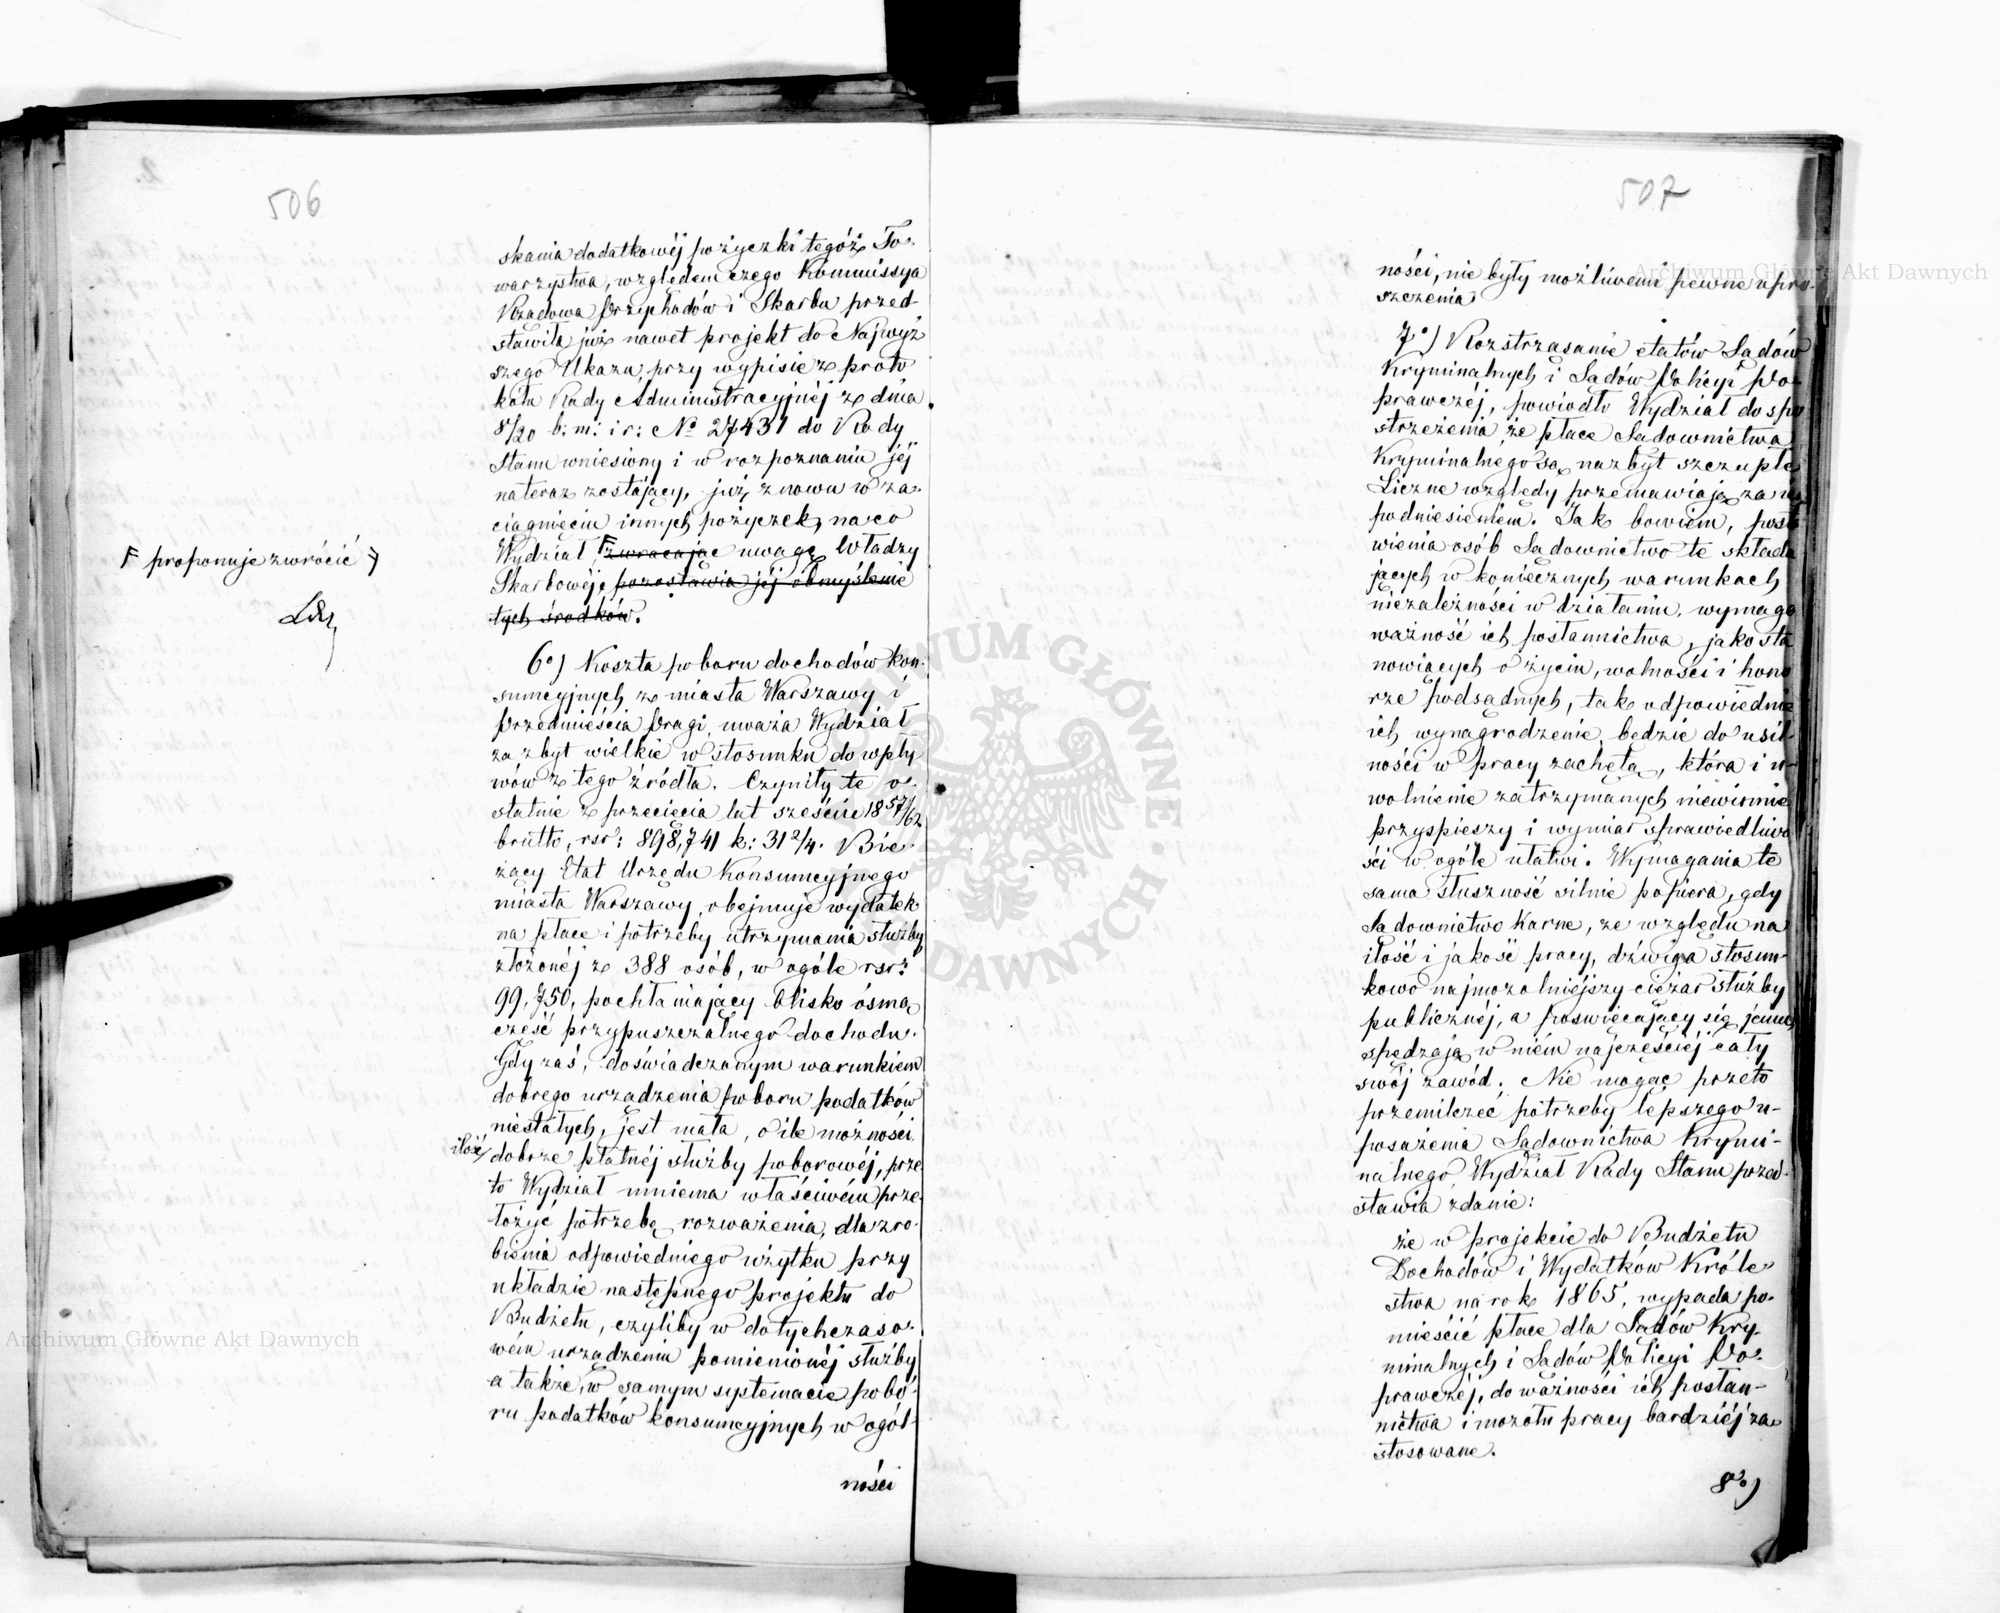 506
skania dodatkowéj pożyczki tegóż To-
warzystwa, względem czego Kommissya
Rządowa Przychodów i Skarbu przed-
stawiła już nawet projekt do Najwyż-
szego Ukazu, przy wypisie z proto-
kółu Rady Administracyjnéj z dnia
8/20 b: m: i r: № 27431 do Rady
Stanu wniesiony i w rozpoznaniu jéj
na teraz zostający, już znowu w za-
ciągnięciu innych pożyczek, na co
Wydział zwracając uwagę Władzy
Skarbowéj, pozostawia jéj obmyślenie
tych środków.
proponuje zwrócić
6o) Koszta poboru dochodów kon-
sumcyjnych z miasta Warszawy i
Przedmieścia Pragi, uważa Wydział
za zbyt wielkie w stosunku do wpły-
wów z tego źródła. Czyniły te o-
statnie z przecięcia lat sześciu 1857/62
brutto, rsr: 898,741 k: 31 2/4. Bie-
żący Etat Urzędu Konsumcyjnego
miasta Warszawy, obejmuje wydatek
na płace i potrzeby utrzymania służby
złożonéj z 388 osób, w ogóle rsr:
99,750, pochłaniający blisko ósmą
część przypuszczalnego dochodu.
Gdy zaś, doświadczonym warunkiem
dobrego urządzenia poboru podatków
niestałych, jest mała, o ile możności
ilość dobrze płatnéj służby poborowéj, prze-
to Wydział mniema właściwém prze-
łożyć potrzebę rozważenia, dla zro-
bienia odpowiedniego użytku przy
układzie następnego projektu do
Budżetu, czyliby w dotychczaso-
wém urządzeniu pomienionéj służby
a także, w samym systemacie pobo-
ru podatków konsumcyjnych w ogól-
ności
507
ności, nie były możliwemi pewne upro-
szczenia
7o) Rozstrząsanie etatów Sądów
Kryminalnych i Sądów Policyi Po-
prawczéj, powiodło Wydział do spo-
strzeżenia że płace Sądownictwa
Kryminalnego są nazbyt szczupłe
Liczne względy przemawiają za ich
podniesieniem. Jak bowiem, posta-
wienia osób Sądownictwo te składa-
jących w koniecznych warunkach
niezależności w działaniu, wymaga
ważność ich posłannictwa, jako sta-
nowiących o życiu, wolności i hono-
rze podsądnych, tak odpowiednie
ich wynagrodzenie będzie do usil-
ności w pracy zachętą, która i u-
wolnienie zatrzymanych niewinnie
przyspieszy i wymiar sprawiedliwo-
ści w ogóle ułatwi. Wymagania te
sama słuszność silnie popiera, gdy
Sądownictwo Karne, ze względu na
ilość i jakość pracy, dźwiga stosun-
kowo najmozolniejszy ciężar służby
publicznéj, a poświęcający się jemu,
spędzają w niém najczęściéj cały
swój zawód. Nie mogąc przeto
przemilczeć potrzeby lepszego u-
posażenia Sądownictwa Krymi-
nalnego, Wydział Rady Stanu przed-
stawia zdanie:
że w projekcie do Budżetu
Dochodów i Wydatków Króle-
stwa na rok 1865, wypada po-
mieścić płace dla Sądów Kry-
minalnych i Sądów Policyi Po-
prawczéj, do ważności ich posłan-
nictwa i mozołu pracy bardziéj za-
stosowane.
8o)
Archiwum Główne Akt Dawnych
Archiwum Główne Akt Dawnych
ARCHIWUM GŁÓWNE AKT DAWNYCH